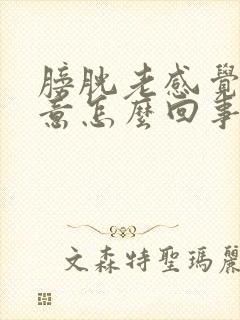 膀胱老感覺
意怎麼回事
文森特聖瑪麗